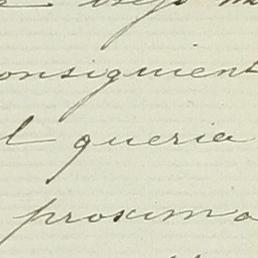 viejo
onsiguient
l queria
proxima